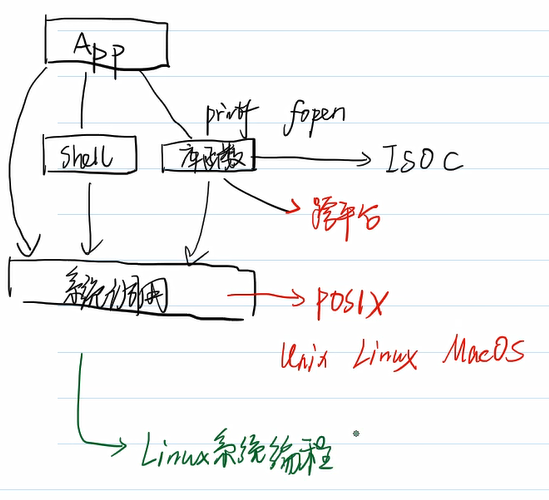 App
printf fopen
shell 库函数 ISO C
跨平台
系统调用 POSIX
Unix Linux MacOS
Linux系统编程